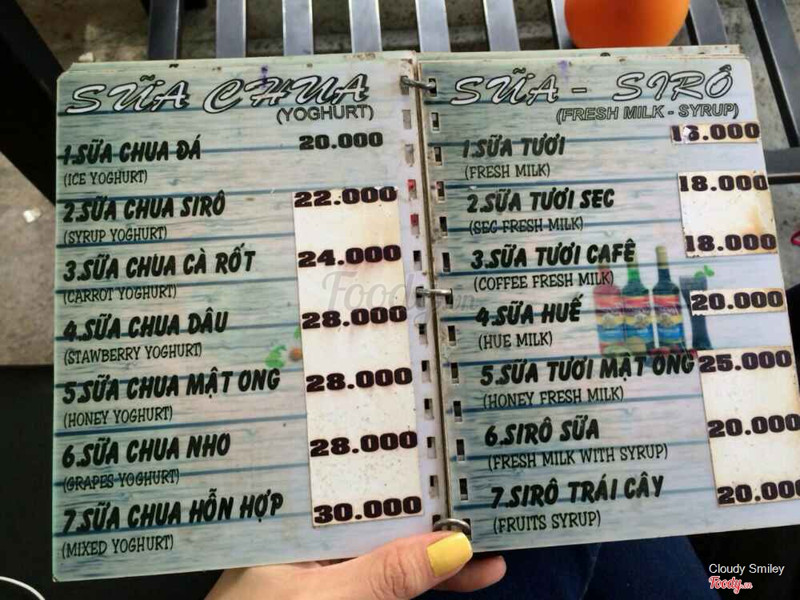 SỮA CHUA
(YOGHURT)
1.SỮA CHUA ĐÁ 20.000
(ICE YOGHURT)
2.SỮA CHUA SIRÔ 22.000
(SYRUP YOGHURT)
3.SỮA CHUA CÀ RỐT 24.000
(CARROT YOGHURT)
4.SỮA CHUA DÂU 28.000
(STAWBERRY YOGHURT)
5.SỮA CHUA MẬT ONG 28.000
(HONEY YOGHURT)
6.SỮA CHUA NHO 28.000
(GRAPES YOGHURT)
7.SỮA CHUA HỖN HỢP 30.000
(MIXED YOGHURT)
SỮA - SIRÔ
(FRESH MILK - SYRUP)
1.SỮA TƯƠI 16.000
(FRESH MILK)
2.SỮA TƯƠI SEC 18.000
(SEC FRESH MILK)
3.SỮA TƯƠI CAFÊ 18.000
(COFFEE FRESH MILK)
4.SỮA HUẾ 20.000
(HUE MILK)
5.SỮA TƯƠI MẬT ONG 25.000
(HONEY FRESH MILK)
6.SIRÔ SỮA 20.000
(FRESH MILK WITH SYRUP)
7.SIRÔ TRÁI CÂY 20.000
(FRUITS SYRUP)
Foody.vn
Cloudy Smiley
Foody.vn